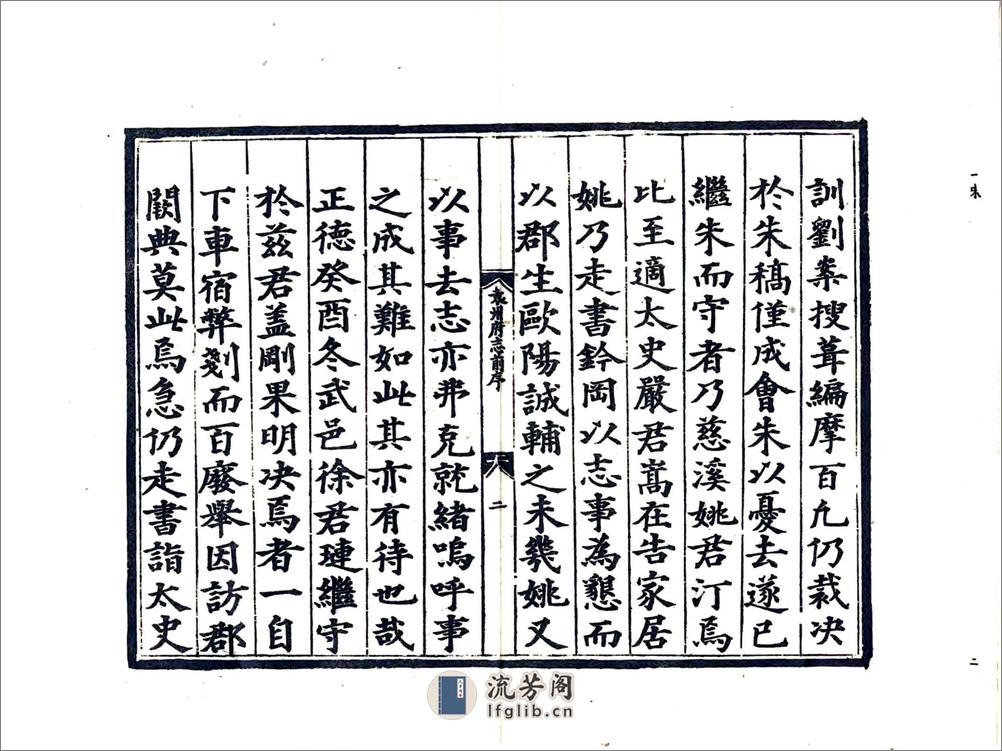 訓劉槃搜葺編摩百凢仍裁决
於朱稿僅成會朱以憂去遂已
繼朱而守者乃慈溪姚君汀焉
比至適太史嚴君嵩在告家居
姚乃走書鈐岡以志事為懇而
以郡生歐陽誠輔之未幾姚又
袁州府志前序
二
以事去志亦弗克就緒嗚呼事
之成其難如此其亦有待也哉
正德癸酉冬武邑徐君璉繼守
於兹君盖剛果明决焉者一自
下車宿弊剗而百廢舉因訪郡
闕典莫此焉急仍走書詣太史
二
流芳阁
lfglib.cn